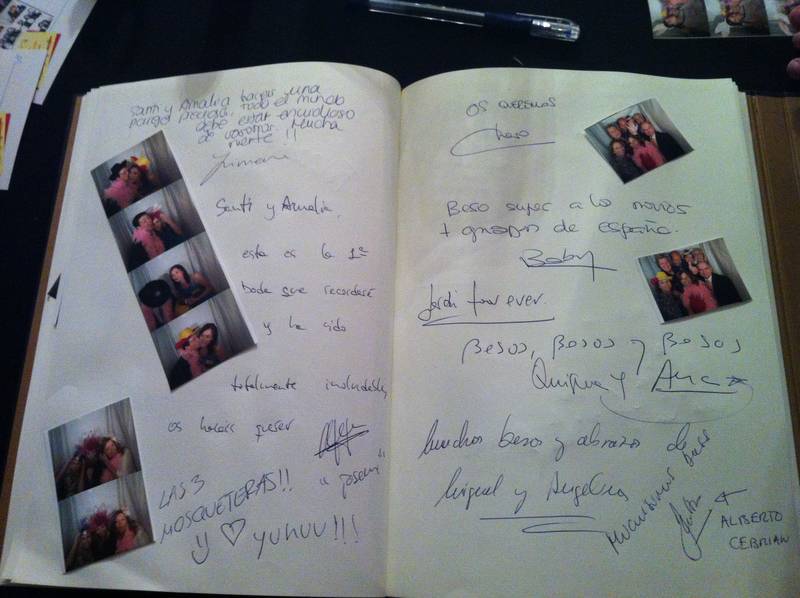 Santi y Amalia haceis una
pareja preciosa. Todo el mundo
debe estar envidioso
de vosotros. Mucha
mente!!
Santi y Amalia,
esta es la 1ª
boda que recordaré
y ha sido
totalmente inolvidable,
os haceis querer
"josemi"
LAS 3
MOSQUETERAS!!
y ♡ YUHUU!!!
OS QUEREMOS
Beso super a lo novios
+ guapos de españa.
Baby
Jordi forever.
BESOS, BESOS y BESOS
y Ana
Muchos besos y abrazos de
Miguel y Angelina
+
ALBERTO
CEBRIAN